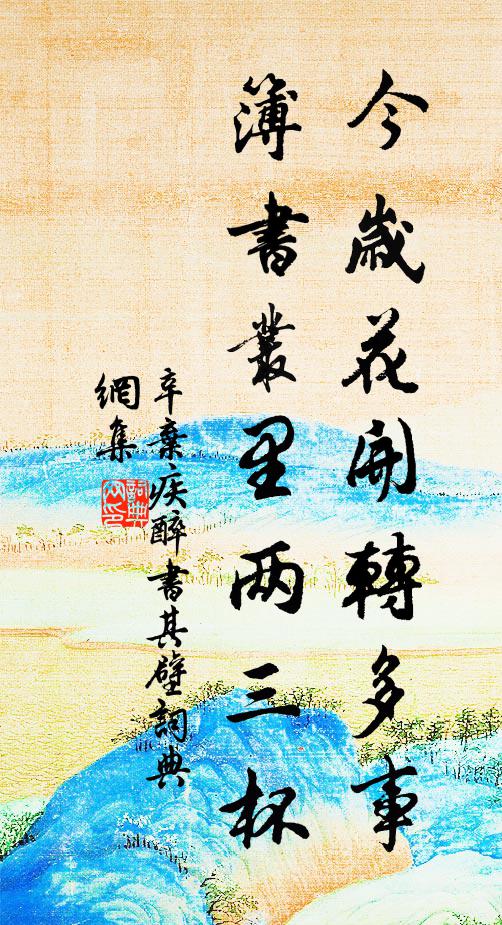 今歲花開轉多事
簿書叢里两三杯
辛棄疾醉書其壁詞典
網集